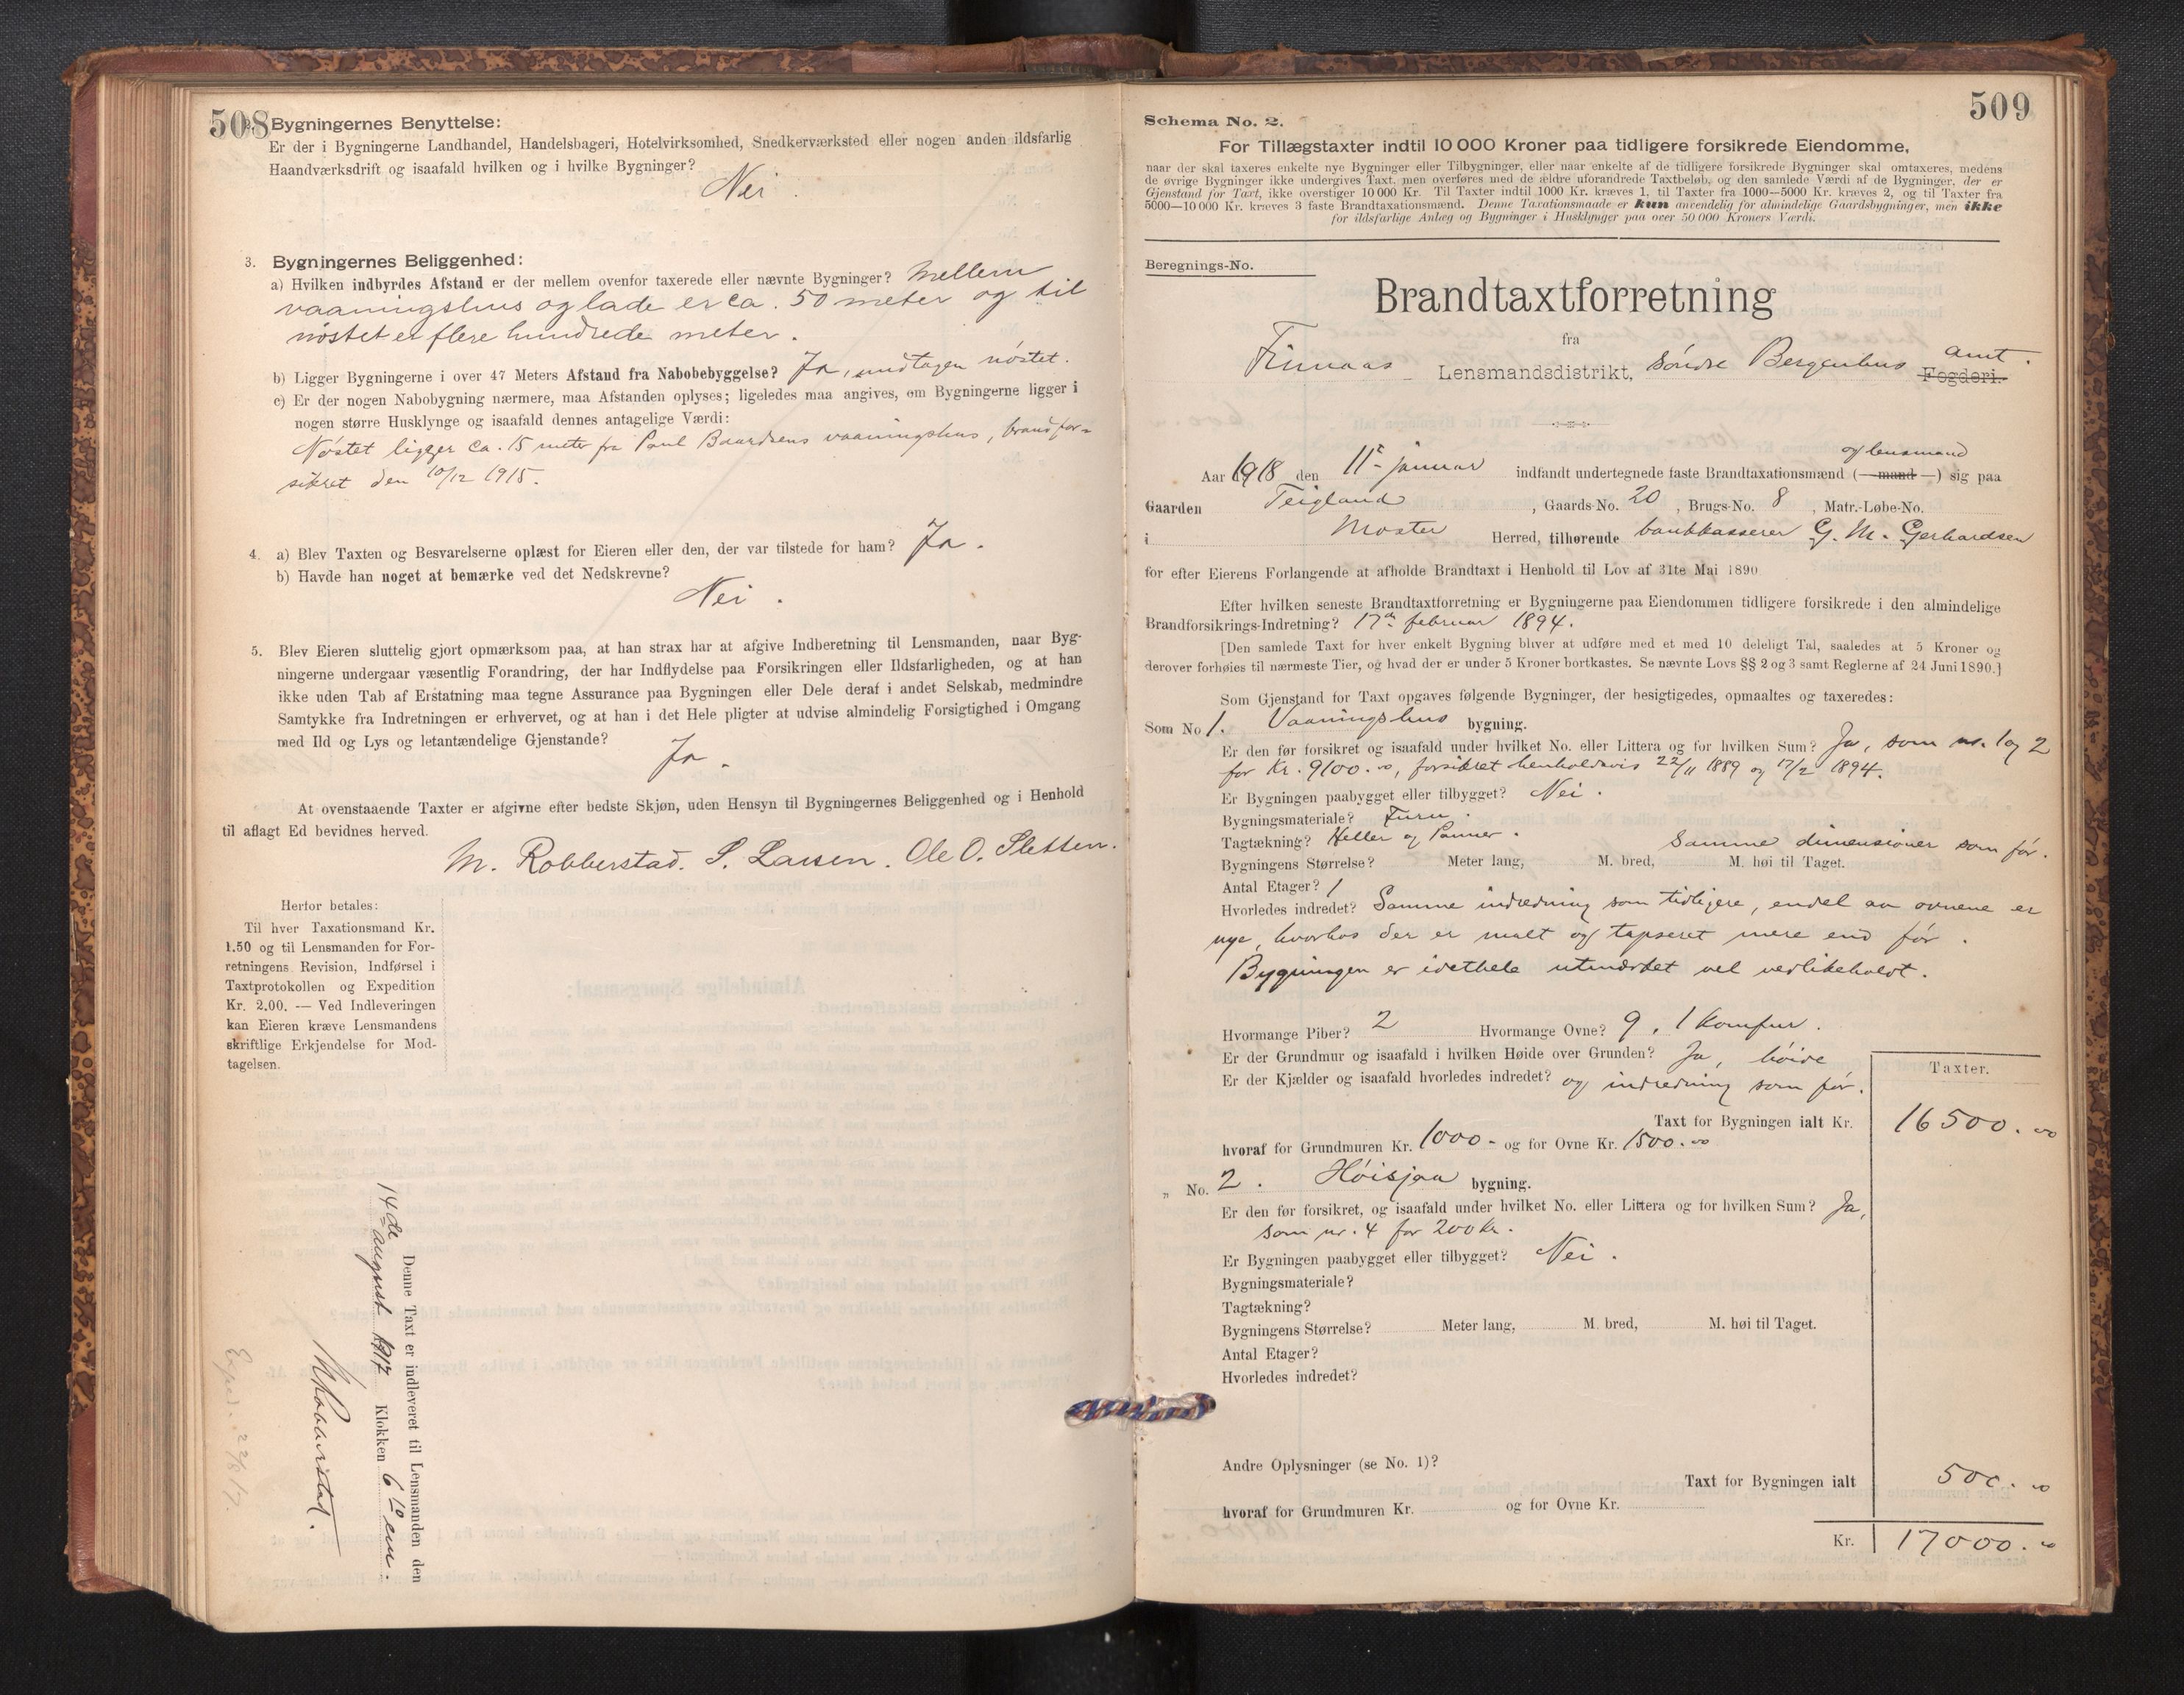 508
Bygningernes Benyttelse:
Er der i Bygningerne Landhandel, Handelsbageri, Hotelvirksomhed, Snedkerværksted eller nogen anden ildsfarlig
Haandværksdrift og isaafald hvilken og i hvilke Bygninger?
Nei.
3. Bygningernes Beliggenhed:
a) Hvilken indbyrdes Afstand er der mellem ovenfor taxerede eller nævnte Bygninger? Mellem
vaaningshus og lade er ca. 50 meter og til
nöstet er flere hundrede meter.
b) Ligger Bygningerne i over 47 Meters Afstand fra Nabobebyggelse? Ja, undtagen nöstet.
c) Er der nogen Nabobygning nærmere, maa Afstanden oplyses; ligeledes maa angives, om Bygningerne ligger i
nogen større Husklynge og isaafald dennes antagelige Værdi:
Nöstet ligger ca. 15 meter fra Paul Baardsens vaaningshus, brandfor-
sikret den 10/12 1915.
4. a) Blev Taxten og Besvarelserne oplæst for Eieren eller den, der var tilstede for ham? Ja.
b) Havde han noget at bemærke ved det Nedskrevne?
Nei.
5. Blev Eieren sluttelig gjort opmærksom paa, at han strax har at afgive Indberetning til Lensmanden, naar Byg-
ningerne undergaar væsentlig Forandring, der har Indflydelse paa Forsikringen eller Ildsfarligheden, og at han
ikke uden Tab af Erstatning maa tegne Assurance paa Bygningen eller Dele deraf i andet Selskab, medmindre
Samtykke fra Indretningen er erhvervet, og at han i det Hele pligter at udvise almindelig Forsigtighed i Omgang
med Ild og Lys og letantændelige Gjenstande?
Ja.
At ovenstaaende Taxter er afgivne efter bedste Skjøn, uden Hensyn til Bygningernes Beliggenhed og i Henhold
til aflagt Ed bevidnes herved.
M. Robberstad. S. Larsen. Ole O. Sletten.
Herfor betales:
Til hver Taxationsmand Kr.
1.50 og til Lensmanden for For-
retningens Revision, Indførsel i
Taxtprotokollen og Expedition
Kr. 2.00. — Ved Indleveringen
kan Eieren kræve Lensmandens
skriftlige Erkjendelse for Mod-
tagelsen.
Denne Taxt er indleveret til Lensmanden den
14de august 1917 Klokken 6 em.
Exped. 22/8 17.
509
Schema No. 2.
For Tillægstaxter indtil 10 000 Kroner paa tidligere forsikrede Eiendomme,
naar der skal taxeres enkelte nye Bygninger eller Tilbygninger, eller naar enkelte af de tidligere forsikrede Bygninger skal omtaxeres, medens
de øvrige Bygninger ikke undergives Taxt, men overføres med de ældre uforandrede Taxtbeløb, og den samlede Værdi af de Bygninger, der er
Gjenstand for Taxt, ikke overstiger 10 000 Kr. Til Taxter indtil 1000 Kr. kræves 1, til Taxter fra 1000—5000 Kr. kræves 2, og til Taxter fra
5000—10 000 Kr. kræves 3 faste Brandtaxationsmænd. Denne Taxationsmaade er kun anvendelig for almindelige Gaardsbygninger, men ikke
for ildsfarlige Anlæg og Bygninger i Husklynger paa over 50 000 Kroners Værdi.
Beregnings-No.
Brandtaxtforretning
fra
Finnaas Lensmandsdistrikt, söndre Bergenhus amt. Fogderi.
og lensmand
Aar 1918 den 11te januar indfandt undertegnede faste Brandtaxationsmænd (—mand—) sig paa
Gaarden Teigland, Gaards-No. 20, Brugs-No. 8, Matr.-Løbe-No.
i Moster Herred, tilhørende bankkasserer G. M. Gerhardsen
for efter Eierens Forlangende at afholde Brandtaxt i Henhold til Lov af 31te Mai 1890.
Efter hvilken seneste Brandtaxtforretning er Bygningerne paa Eiendommen tidligere forsikrede i den almindelige
Brandforsikrings-Indretning? 17de februar 1894.
[Den samlede Taxt for hver enkelt Bygning bliver at udføre med et med 10 deleligt Tal, saaledes at 5 Kroner og
derover forhøies til nærmeste Tier, og hvad der er under 5 Kroner bortkastes. Se nævnte Lovs §§ 2 og 3 samt Reglerne af 24 Juni 1890.]
Som Gjenstand for Taxt opgaves følgende Bygninger, der besigtigedes, opmaaltes og taxeredes:
Som No 1. Vaaningshus bygning.
Er den før forsikret og isaafald under hvilket No. eller Littera og for hvilken Sum? Ja, som nr. 1 og 2
for Kr. 9100.00, forsikret henholdsvis 22/11 1889 og 17/2 1894.
Er Bygningen paabygget eller tilbygget? Nei.
Bygningsmateriale? Furu.
Tagtækning? Heller og Panner. Samme dimensioner som før.
Bygningens Størrelse? Meter lang, M. bred, M. høi til Taget.
Antal Etager? 1
Hvorledes indredet? Samme indredning som tidligere, endel av ovnene er
nye, hvorhos der er malt og tapseret mere end før.
Bygningen er idethele utmærket vel vedlikeholdt.
Hvormange Piber? 2 Hvormange Ovne? 9, 1 Komfur.
Er der Grundmur og isaafald i hvilken Høide over Grunden? Ja, höide
Er der Kjælder og isaafald hvorledes indredet? og indredning som før.
Taxter.
Taxt for Bygningen ialt Kr. 16500.00
hvoraf for Grundmuren Kr. 1000- og for Ovne Kr. 1500.00
„ No. 2. Höisjaa bygning.
Er den før forsikret, og isaafald under hvilket No. eller Littera og for hvilken Sum? Ja,
som nr. 4 for 200 kr.
Er Bygningen paabygget eller tilbygget? Nei.
Bygningsmateriale?
Tagtækning?
Bygningens Størrelse? Meter lang, M. bred, M. høi til Taget.
Antal Etager?
Hvorledes indredet?
Andre Oplysninger (se No. 1)?
Taxt for Bygningen ialt 500.00
hvoraf for Grundmuren Kr. og for Ovne Kr.
Kr. 17000.00